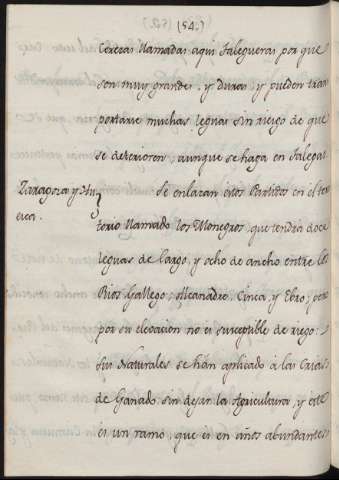 (54.)
Cerezas llamadas aqui Talegueras por que
son muy grandes, y duras y pueden tran
portarse muchas leguas sin riesgo de que
se deterioren, aunque se haga en Talegas.
Zaragoza y Hu
esca.
Se enlazan estos Partidos en el ter
torio llamado los Monegros, que tendrá doce
leguas de largo, y ocho de ancho entre los
Rios Gallego, Alcanadre, Cinca, y Ebro; pero
por su elevacion no es susceptible de riego:
Sus Naturales se hán aplicado à las Crias
de Ganado sin dejar la Agricultura, y este
es un ramo, que es en años abundantes